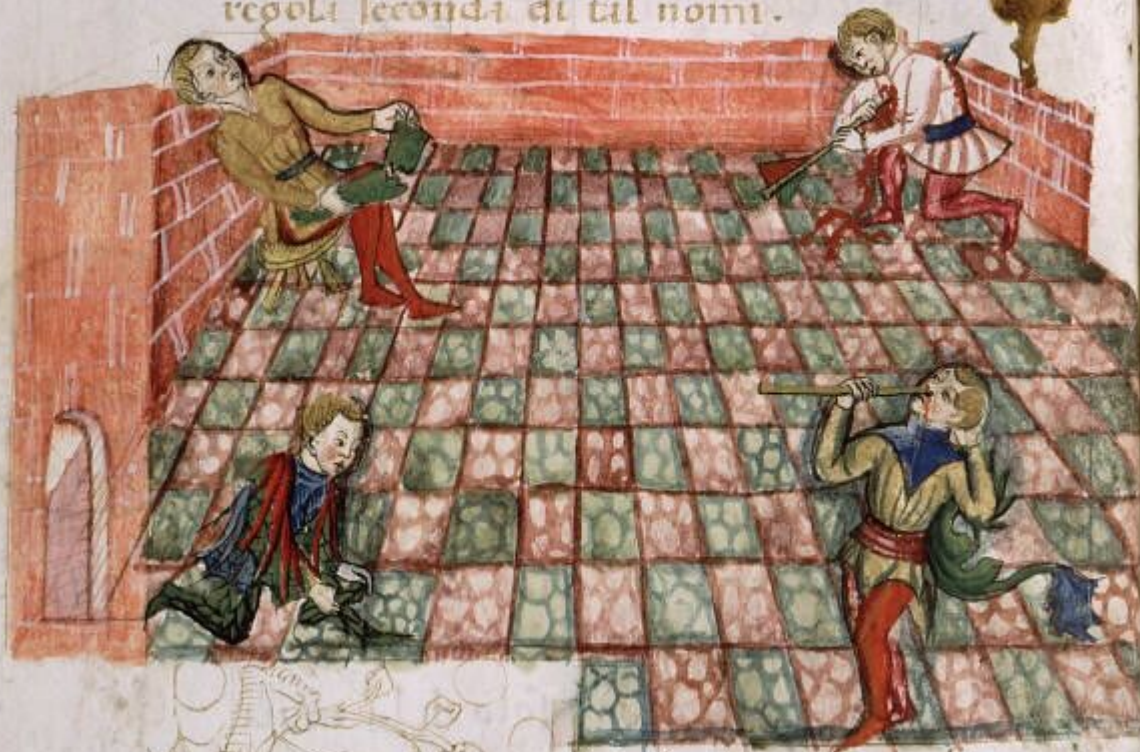 regoli secondi di til nomi.